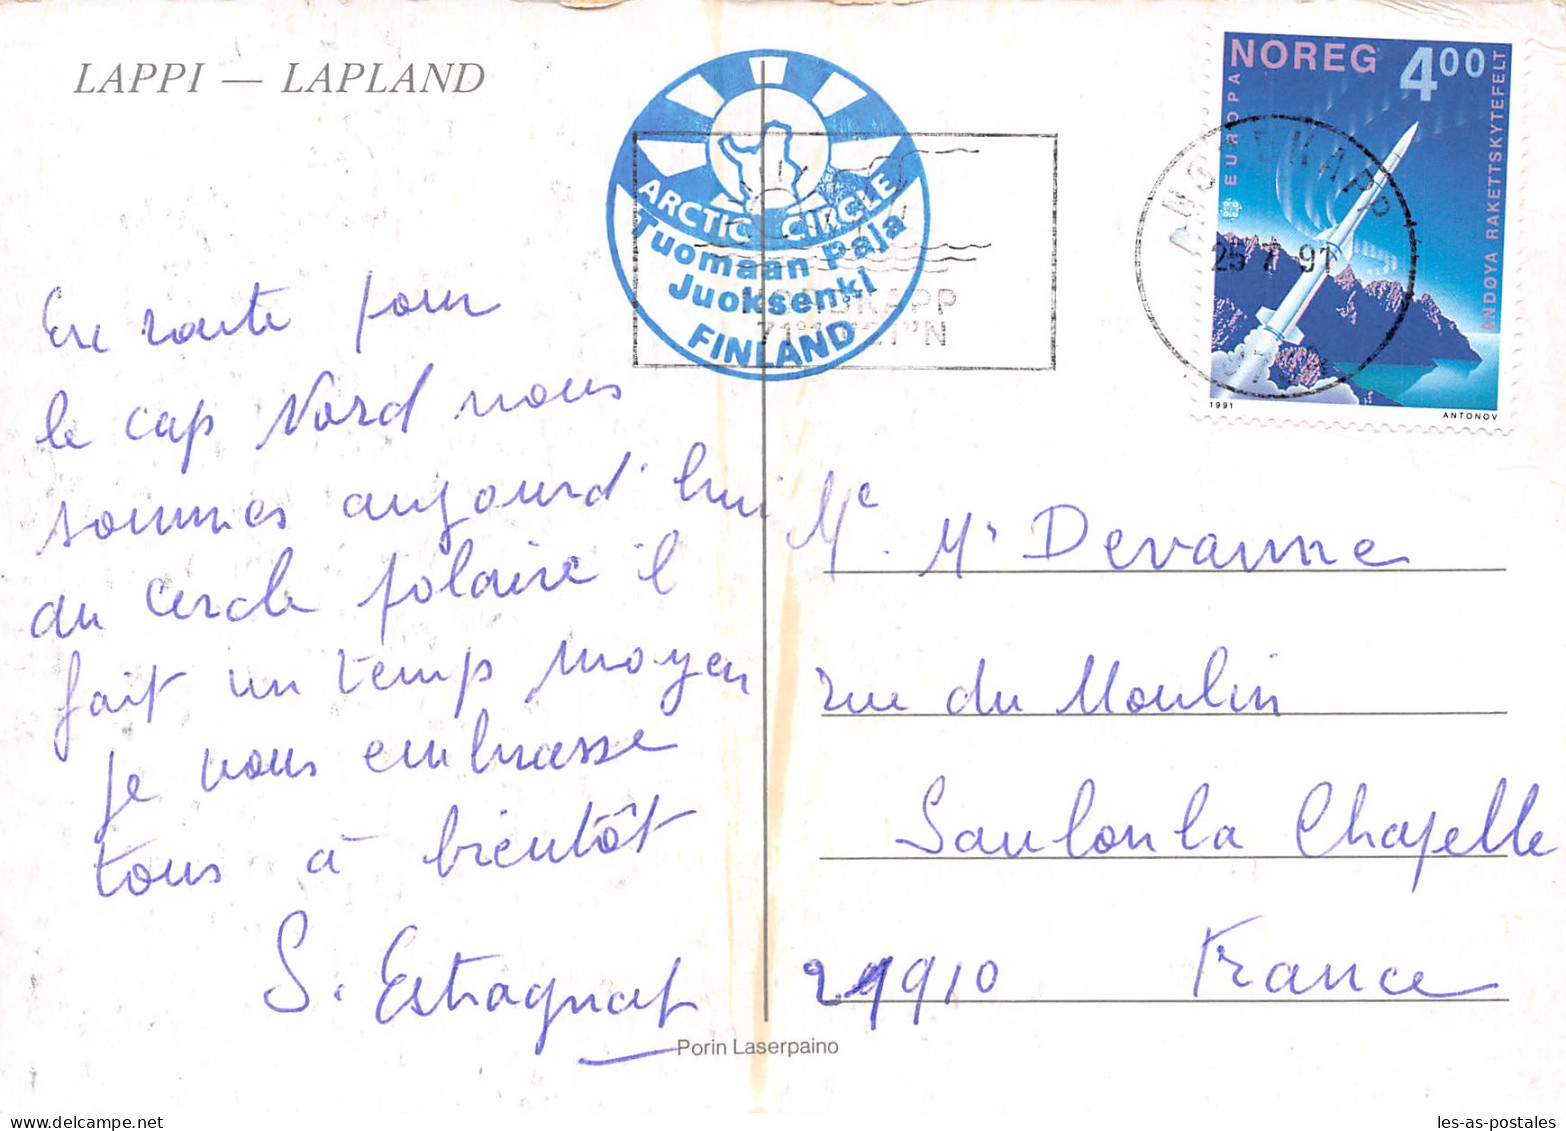 LAPPI — LAPLAND
ARCTIC CIRCLE
Tuomaan Paja
Juoksenki
FINLAND
71°
"N
NOREG 400
EUROPA
ANDØYA RAKETTSKYTEFELT
1991
ANTONOV
25 7 91
En route pour
le cap Nord nous
sommes aujourd'hui
au cercle polaire il
fait un temps moyen
je vous embrasse
tous à bientôt
S. Estragnat
Me. Mr Devanne
rue du Moulin
Saulon la Chapelle
21910 France
Porin Laserpaino
les-as-postales
delcampe.net